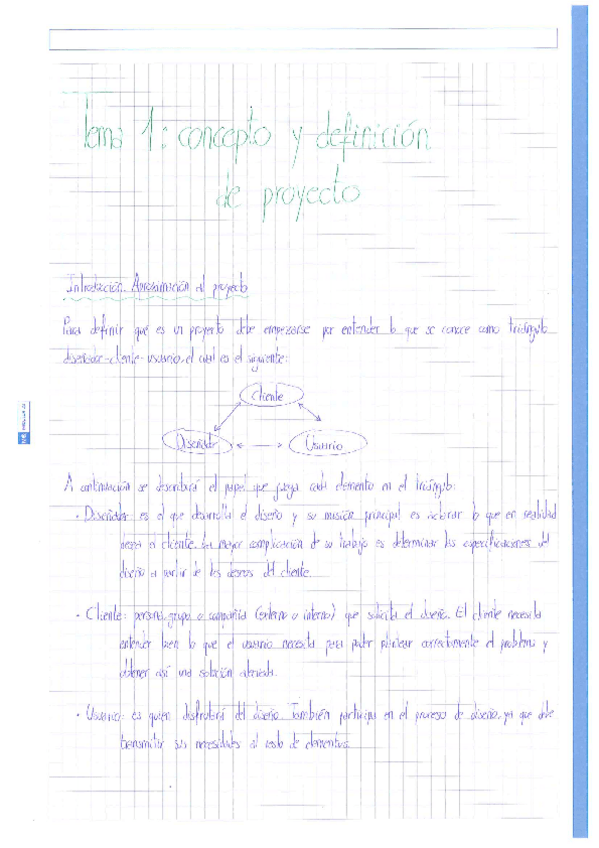 Tema 1: concepto y definición
de proyecto
Introducción. Aproximación al proyecto
Para definir qué es un proyecto debe empezarse por entender lo que se conoce como triángulo
diseñador-cliente-usuario, el cual es el siguiente:
Cliente
Diseñador
Usuario
A continuación se describirá el papel que juega cada elemento en el triángulo:
· Diseñador: es el que desarrolla el diseño y su misión principal es aclarar lo que en realidad
desea el cliente. La mayor complicación de su trabajo es determinar las especificaciones del
diseño a partir de los deseos del cliente.
· Cliente: persona, grupo o compañía (externo o interno) que solicita el diseño. El cliente necesita
entender bien lo que el usuario necesita para poder plantear correctamente el problema y
obtener así una solución adecuada.
· Usuario: es quien disfrutará del diseño. También participa en el proceso de diseño, ya que debe
transmitir sus necesidades al resto de elementos.